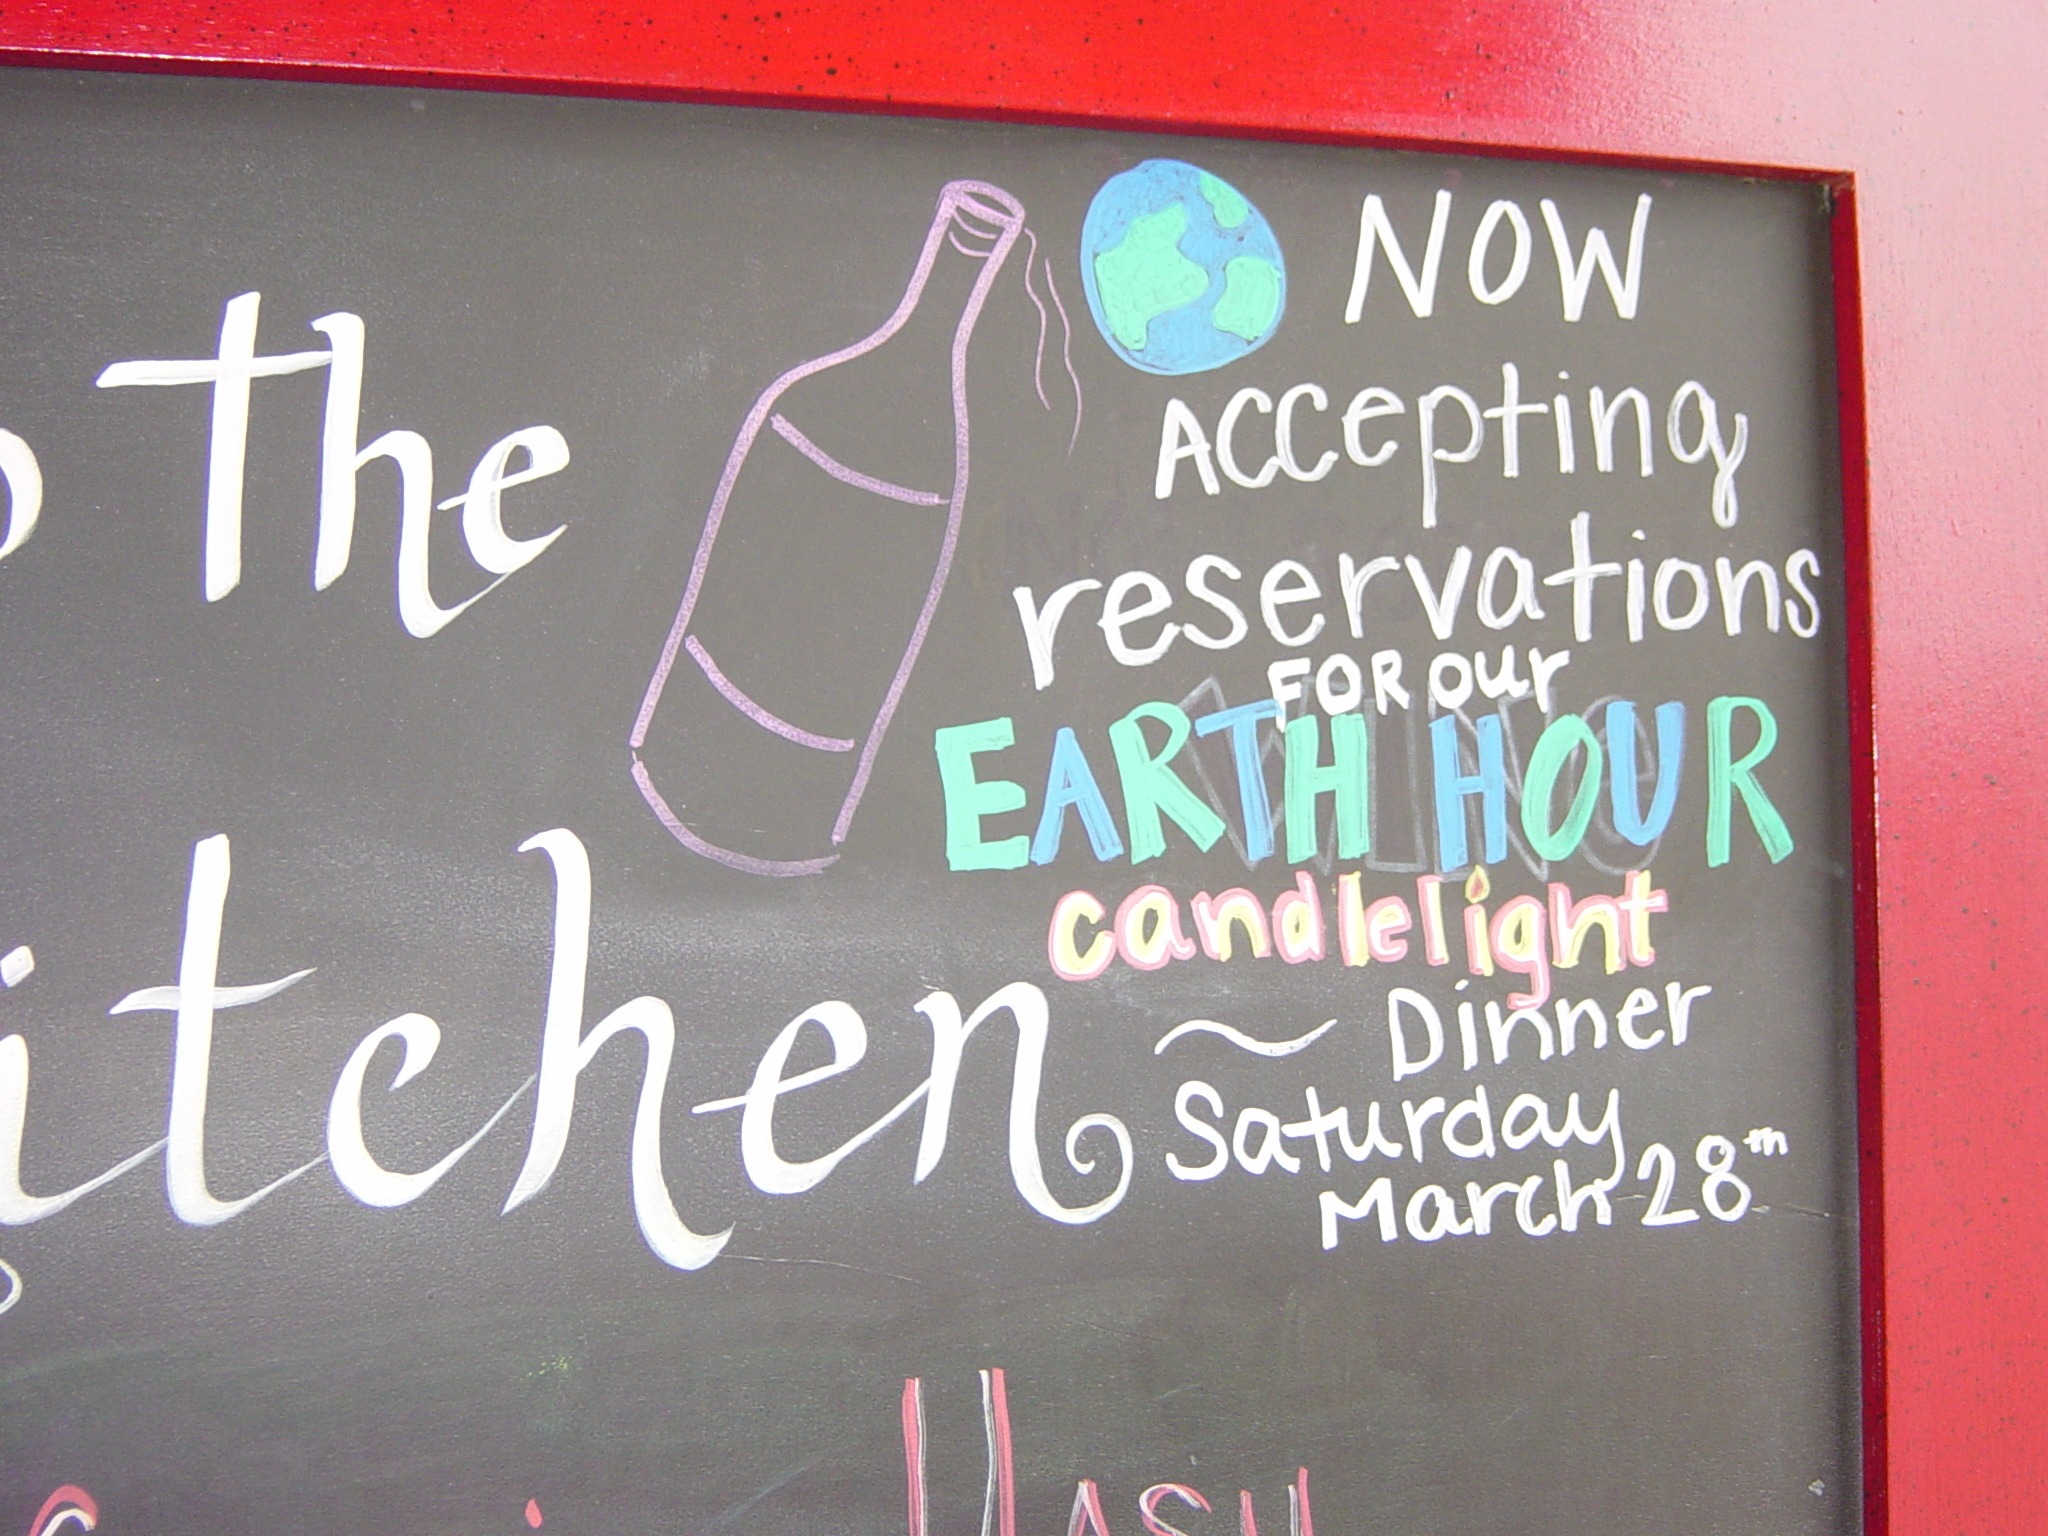 the
kitchen
NOW
Accepting
reservations
FOR our
EARTH HOUR
candlelight
~ Dinner
Saturday
March 28th